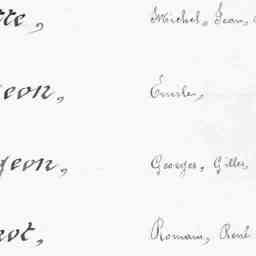 tte, Michel, Jean,
eon, Émile,
geon, Georges, Gilles,
not, Romain, René